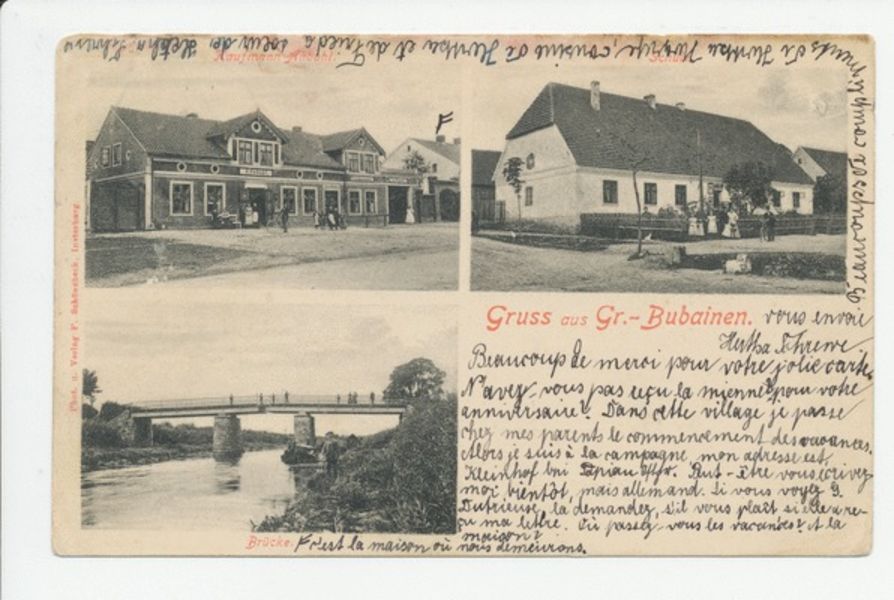 Beaucoups de compliments de Hertha, cousine de Hertha et de Frieda soeur de Hertha Fehrewe
Kaufmann
Schule
F
Phot. u. Verlag F. Schönebeck, Insterburg
Gruss aus Gr.-Bubainen.
vous envoie
Hertha Fehrewe.
Beaucoup de merci pour votre jolie carte.
N'avez vous pas reçu la mienne pour votre
anniversaire? Dans cette village je passe
chez mes parents le commencement des vacances.
Alors je suis à la campagne, mon adresse est,
Kleinhof bei Tapiau O/Pr. Peut-être vous écrivez
moi bientôt, mais allemand. Si vous voyez G.
Dutrieuse, la demandez, s'il vous plaît si elle a re-
çu ma lettre. Où passez-vous les vacances? A la
maison?
Brücke.
F c'est la maison où nous demeurons.